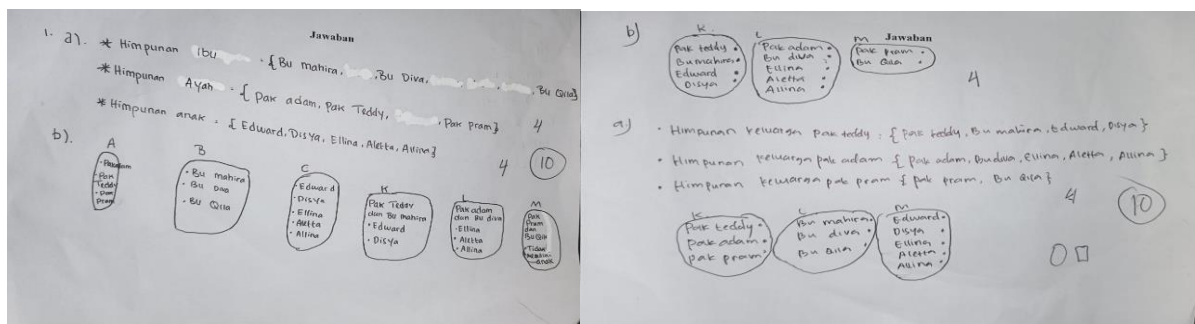 Jawaban
1. a). * Himpunan Ibu = {Bu mahira, ,Bu Diva, , Bu Qila}
* Himpunan Ayah = { pak adam, pak Teddy, , Pak pram}
* Himpunan anak = { Edward, Disya, Ellina, Aletta, Allina}
4
b).
4
10
A
• Pak adam
• Pak Teddy
• Pak Pram
B
• Bu mahira
• Bu
• Bu Qila
C
• Edward
• Disya
• Ellina
• Aletta
• Allina
K
Pak Teddy
dan Bu mahira
• Edward
• Disya
L
Pak adam
dan Bu diva
• Ellina
• Aletta
• Allina
M
Pak
Pram
dan
Bu Qila
• Tidak
anak
Jawaban
b)
K
Pak teddy •
Bu mahira •
Edward •
Disya •
L
Pak adam •
Bu diva •
Ellina •
Aletta •
Allina •
M
Pak Pram •
Bu Qila •
4
a)
• Himpunan keluarga pak teddy : { pak teddy, Bu mahira, Edward, Disya }
• Himpunan keluarga pak adam { pak adam, Bu diva, Ellina, Aletta, Allina }
• Himpunan keluarga pak pram { pak pram, Bu Qila }
4
10
K
Pak teddy •
pak adam •
pak pram •
L
Bu mahira •
Bu diva •
Bu Qila •
M
Edward •
Disya •
Ellina •
Aletta •
Allina •